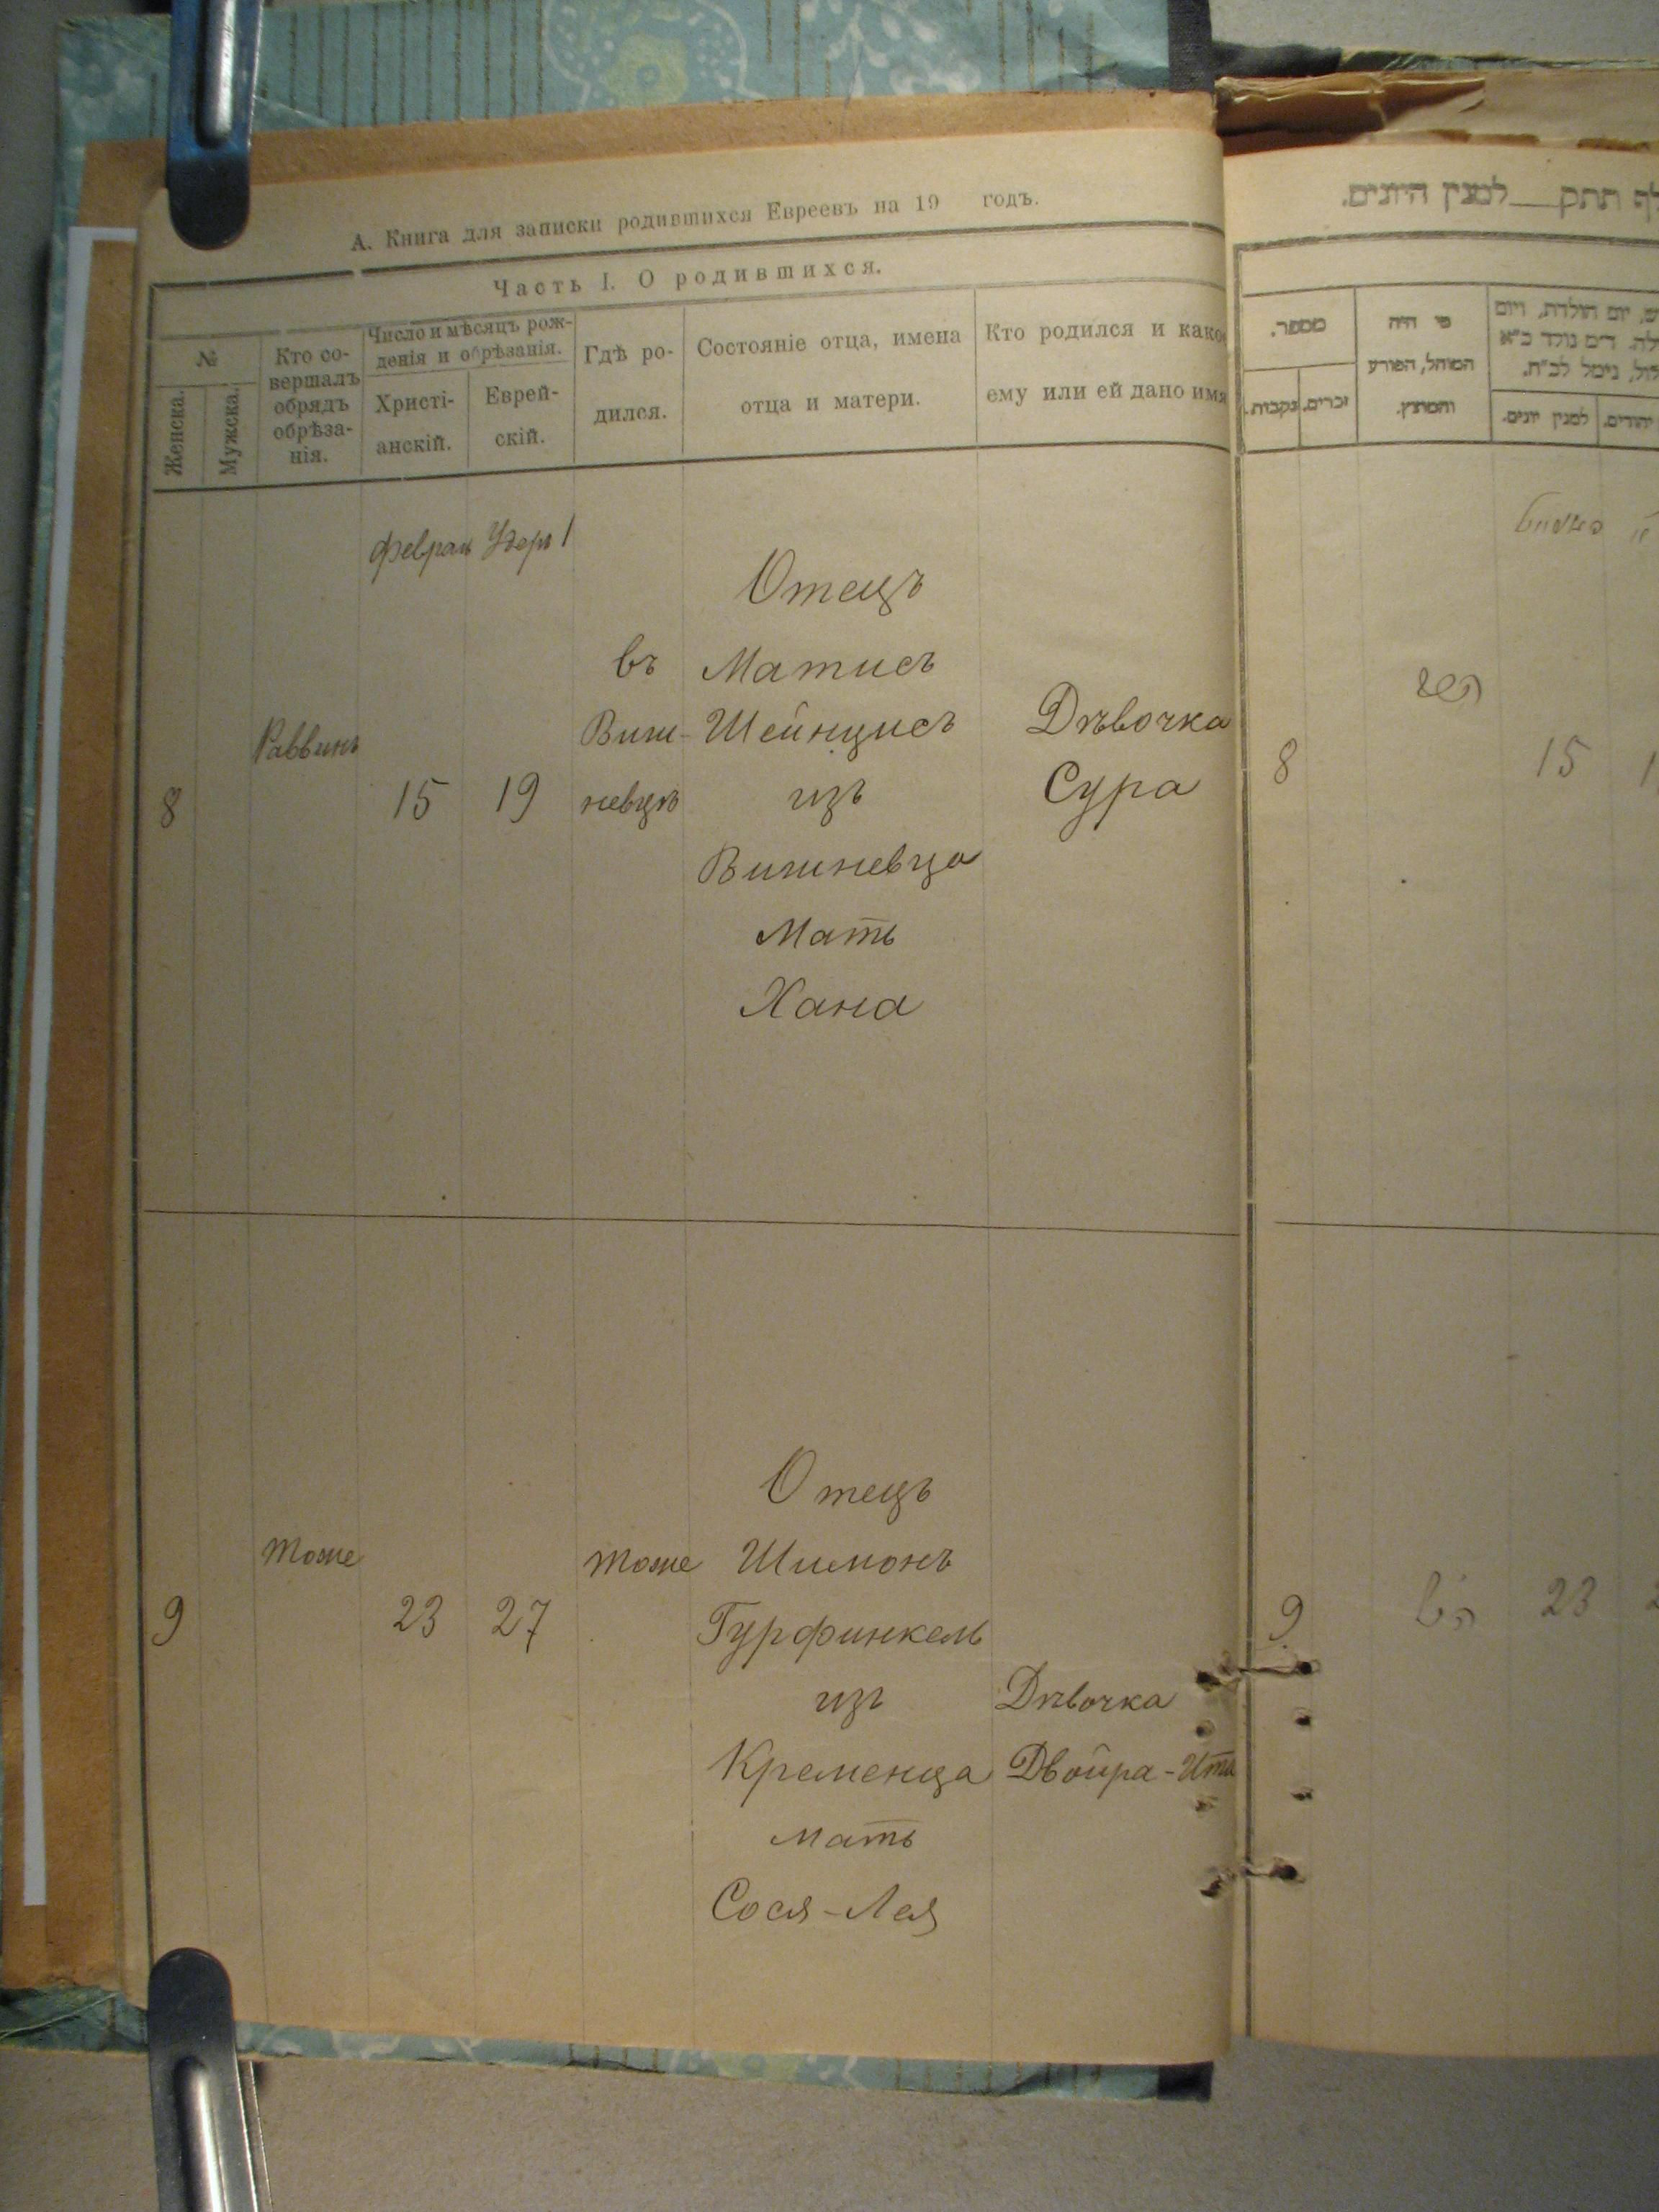 А. Книга для записки родившихся Евреевъ на 19 годъ.
Часть I. О родившихся.
№
Женска.
Мужска.
Кто со-
вершалъ
обрядъ
обрѣза-
нія.
Число и мѣсяцъ рож-
денія и обрѣзанія.
Христі-
анскій.
Еврей-
скій.
Гдѣ ро-
дился.
Состояніе отца, имена
отца и матери.
Кто родился и како
ему или ей дано имя
8
Раввинъ
феврал
15
19
въ
Виш-
невцѣ
Отецъ
Матисъ
Шейнцисъ
изъ
Вишневца
Мать
Хана
Дѣвочка
Сура
9
тоже
23
27
тоже
Отецъ
Шимонъ
Гурфинкель
изъ
Кременца
мать
Сося-Лея
Дѣвочка
Двойра-Ита
לף תתק__למנין היונים.
מספר.
זכרים.
נקבות.
מי היה
המוהל, הפורע
והמוצץ.
יום הולדת, ויום
למנין יונים.
יהודים.
8
15
9
23